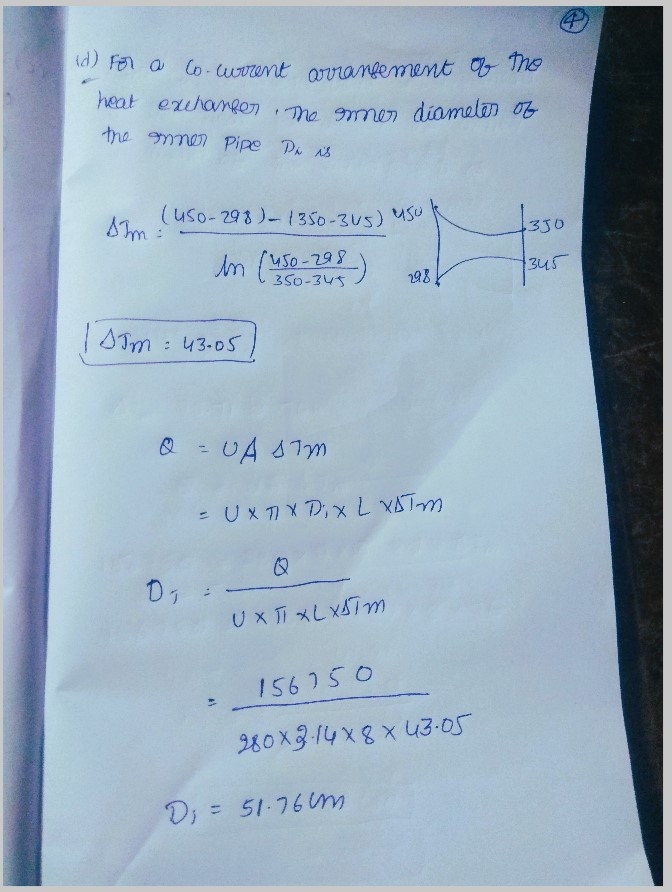 4
(d) For a Co-current arrangement of the
heat exchanger, The inner diameter of
the inner pipe Di is
ΔTm = (450-298) - (350-345) / ln (450-298 / 350-345)
450 350
298 345
ΔTm = 43.05
Q = UA ΔTm
= U × π × Di × L × ΔTm
Di = Q / U × π × L × ΔTm
= 156750 / 280 × 3.14 × 8 × 43.05
Di = 51.76 cm